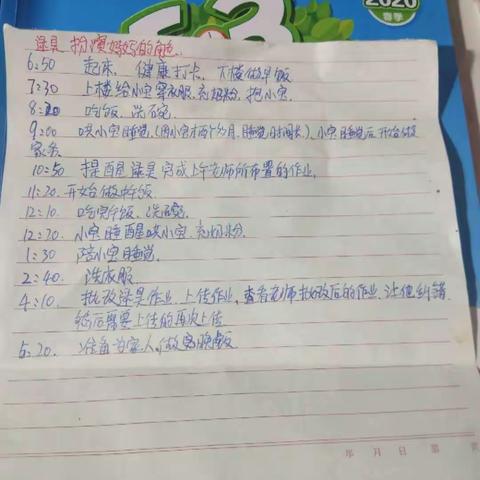 2020
春季
梁昊 扮演妈妈的角色
6:50 起床、健康打卡、下楼做早饭
7:30 上楼给小宝穿衣服.充奶粉.抱小宝.
8:20 吃饭.洗碗.
9:00 哄小宝睡觉.(因小宝才两个多月.睡觉时间长).小宝睡觉后开始做
家务.
10:50 提醒梁昊完成上午老师所布置的作业.
11:20.开始做午饭.
12:10. 吃完午饭.洗碗.
12:30. 小宝睡醒哄小宝.充奶粉.
1:30 陪小宝睡觉.
2:40. 洗衣服
4:10. 批改梁昊作业.上传作业.查看老师批改后的作业.让他纠错.
然后需要上传的再次上传
5:20. 准备为家人做晚饭
年 月 日 第 页